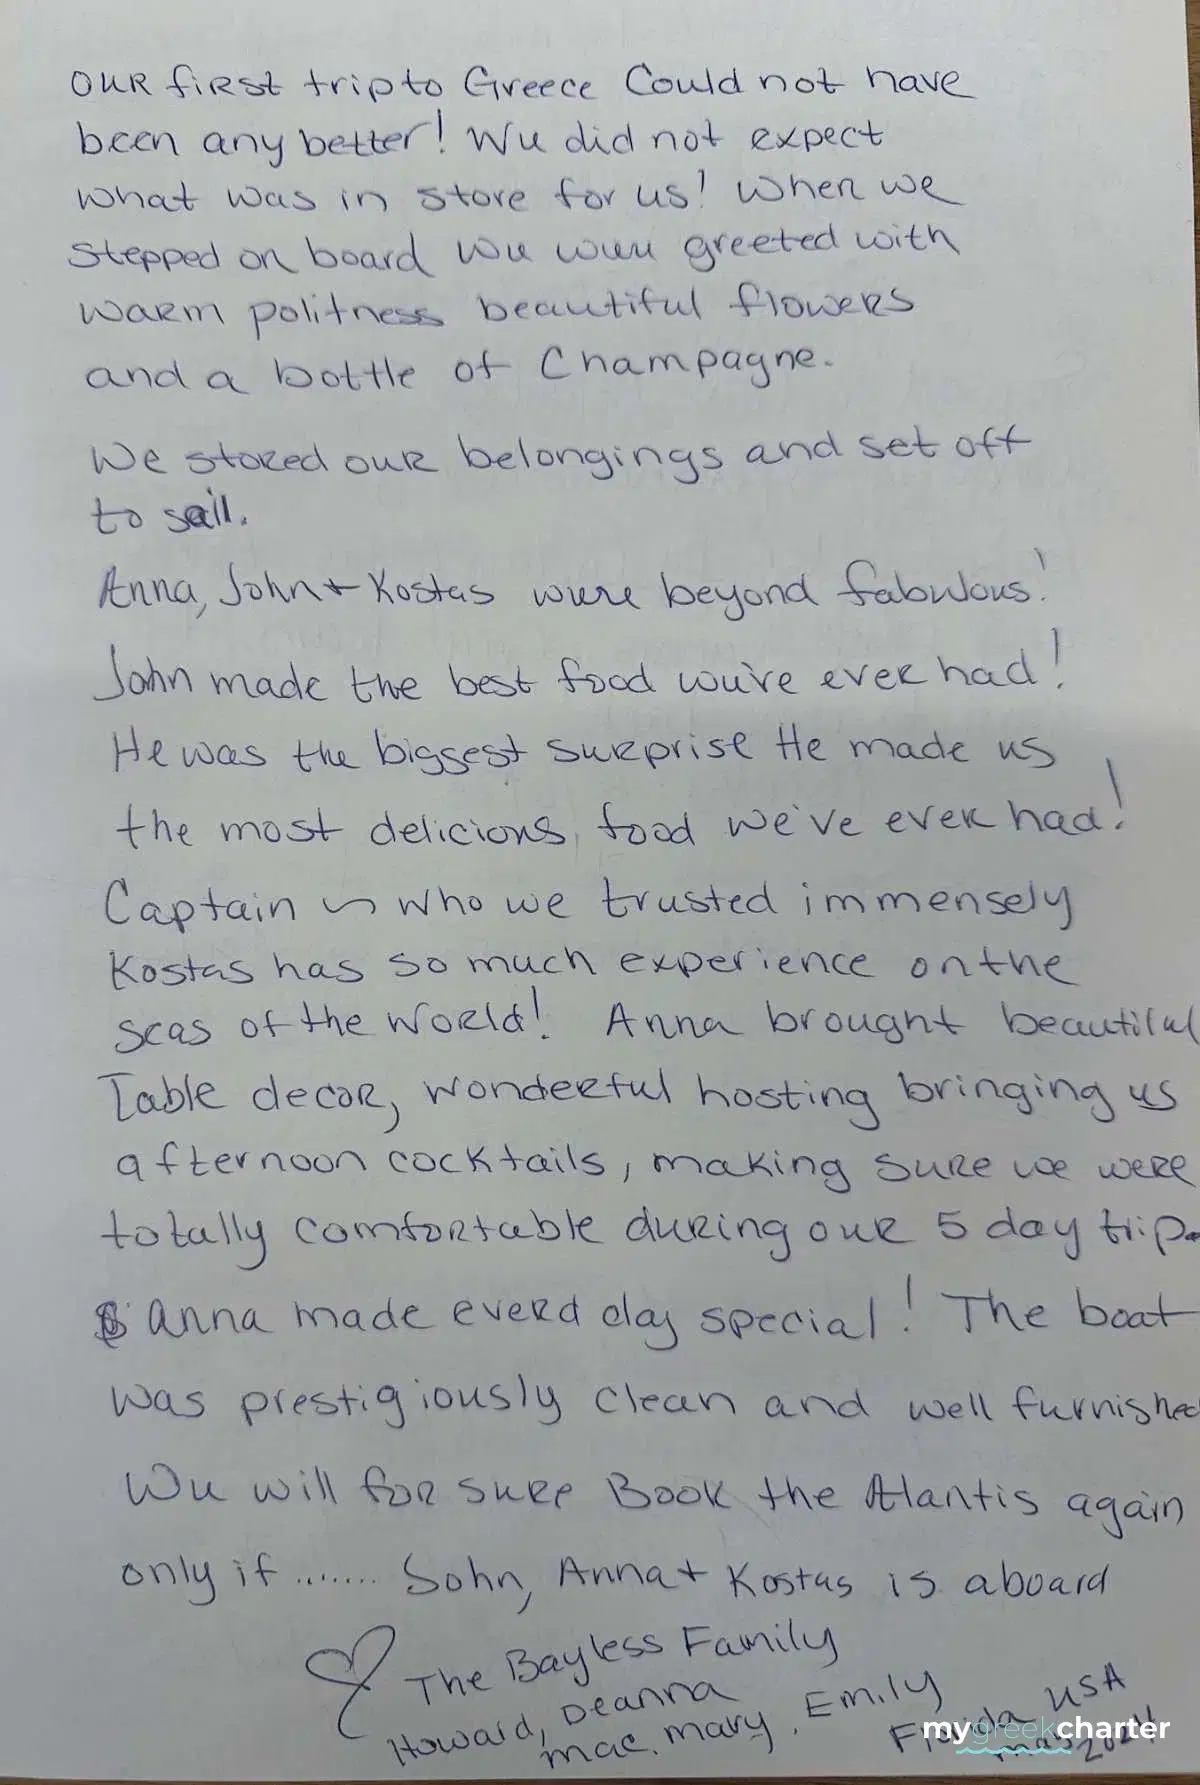 OUR first trip to Greece Could not have
been any better! We did not expect
what was in store for us! When we
stepped on board we were greeted with
warm politness beautiful flowers
and a bottle of Champagne.
We stored our belongings and set off
to sail.
Anna, John + Kostas were beyond fabulous!
John made the best food we've ever had!
He was the biggest surprise He made us
the most delicious food we've ever had!
Captain ~ who we trusted immensely
Kostas has so much experience on the
seas of the World! Anna brought beautiful
Table decor, wonderful hosting bringing us
afternoon cocktails, making sure we were
totally comfortable during our 5 day trip.
Anna made everd day special! The boat
was prestigiously clean and well furnished
We will for sure Book the Atlantis again
only if ....... John, Anna + Kostas is aboard
The Bayless Family
Howard, Deanna
mac. mary. Emily
Florida USA
May 2024
mygreekcharter